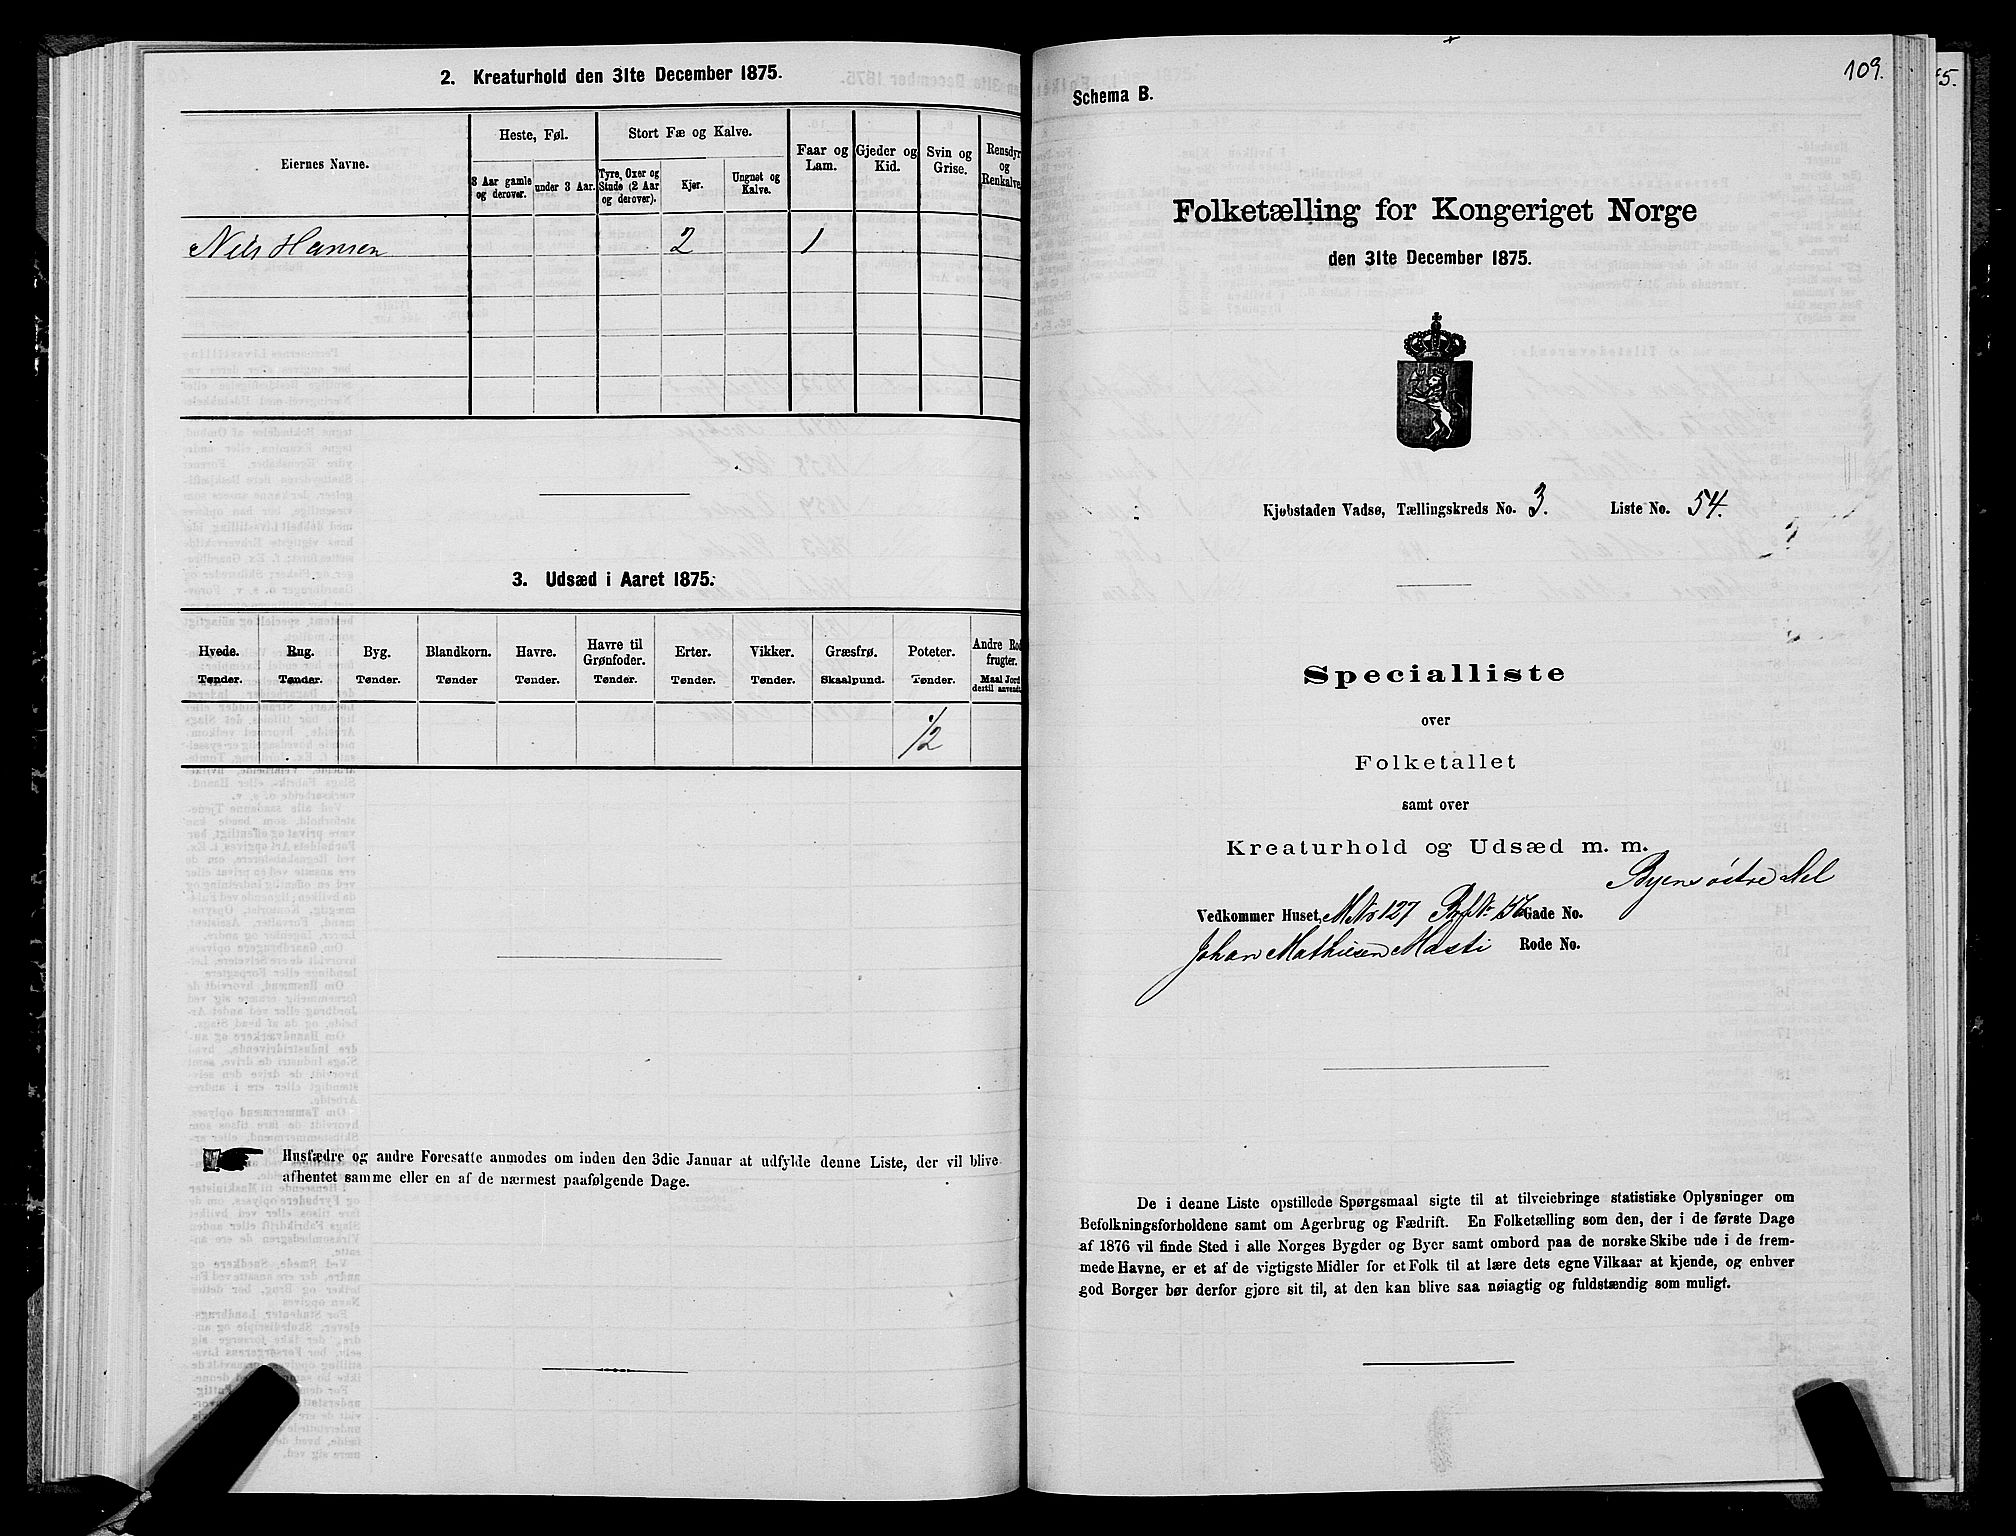 2. Kreaturhold den 31te December 1875.
Eiernes Navne.
Heste, Føl.
Stort Fæ og Kalve.
Faar og Lam.
Gjeder og Kid.
Svin og Grise.
Rensdyr og Renkalve.
3 Aar gamle og derover.
under 3 Aar.
Tyre, Oxer og Stude (2 Aar og derover).
Kjør.
Ungnøt og Kalve.
Niels Hansen 2 1
3. Udsæd i Aaret 1875.
Hvede. Rug. Byg. Blandkorn. Havre. Havre til Grønfoder. Erter. Vikker. Græsfrø. Poteter. Andre Rodfrugter.
Tønder. Tønder. Tønder. Tønder Tønder. Tønder. Tønder. Tønder. Skaalpund. Tønder. Maal Jord dertil anvendt.
1/2
Husfædre og andre Foresatte anmodes om inden den 3die Januar at udfylde denne Liste, der vil blive
afhentet samme eller en af de nærmest paafølgende Dage.
109.
5.
Schema B.
Folketælling for Kongeriget Norge
den 31te December 1875.
Kjøbstaden Vadsø, Tællingskreds No. 3. Liste No. 54.
Specialliste
over
Folketallet
samt over
Kreaturhold og Udsæd m. m.
Byens østre Del
Vedkommer Huset, M.Nr 127 Gade No.
Johan Mathiesen Masti Rode No.
De i denne Liste opstillede Spørgsmaal sigte til at tilveiebringe statistiske Oplysninger om
Befolkningsforholdene samt om Agerbrug og Fædrift. En Folketælling som den, der i de første Dage
af 1876 vil finde Sted i alle Norges Bygder og Byer samt ombord paa de norske Skibe ude i de frem-
mede Havne, er et af de vigtigste Midler for et Folk til at lære dets egne Vilkaar at kjende, og enhver
god Borger bør derfor gjøre sit til, at den kan blive saa nøiagtig og fuldstændig som muligt.